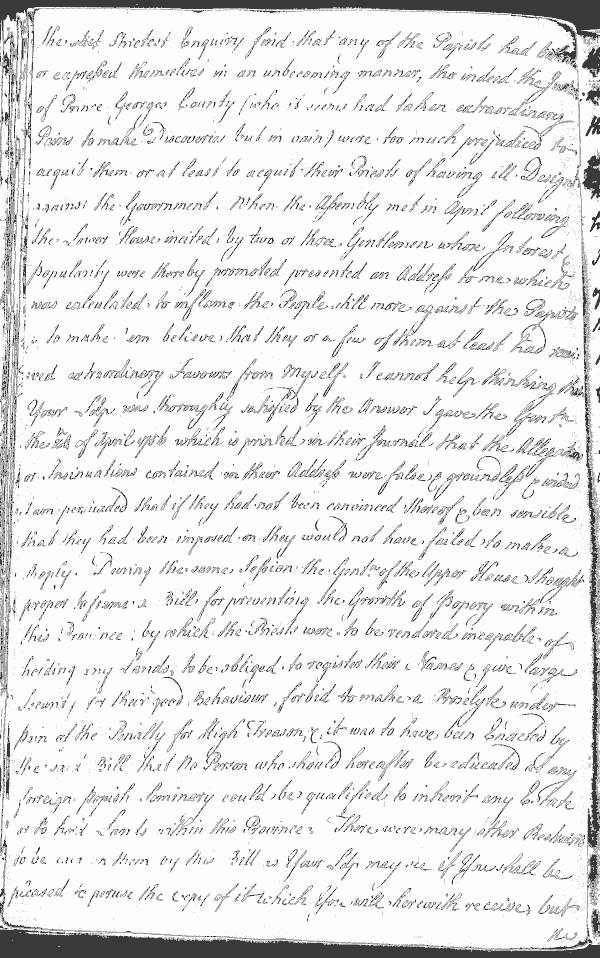 the strictest Enquiry find that any of the Papists had
or expressed themselves in an unbecoming manner, tho indeed the
of Prince Georges County (who it seems had taken extraordinary
Pains to make Discoveries but in vain) were too much prejudiced to
acquit them or at least to acquit their Priests of having ill Designs
against the Government. When the Assembly met in April following
the Lower House incited by two or three Gentlemen whose Interest &
popularity were thereby promoted presented an Address to me which
was calculated to inflame the People still more against the Papists
& to make 'em believe that they or a few of them at least had recei
ved extraordinary Favours from Myself. I cannot help thinking that
Your Ldp was thoroughly satisfied by the Answer I gave the Gentn
the of April 1756 which is printed in their Journal that the Allegations
or Insinuations contained in their Address were false & groundless & indeed
I am persuaded that if they had not been convinced thereof & been sensible
that they had been imposed on they would not have failed to make a
Reply. During the same Session the Gentn of the Upper House thought
proper to frame a Bill for preventing the Growth of Popery within
this Province by which the Priests were to be rendered incapable of
holding any Lands, to be obliged to register their Names & give large
Security for their good Behaviour, forbid to make a Proselyte under
pain of the Penalty for High Treason, & it was to have been Enacted by
the said Bill that No Person who should hereafter be educated at any
foreign Popish Seminary could be qualified to inherit any Estate
or to hold Lands within this Province. There were many other Restraints
to be on them by this Bill as Your Ldp may see if You shall be
pleased to peruse the copy of it which You will herewith receive, but
the